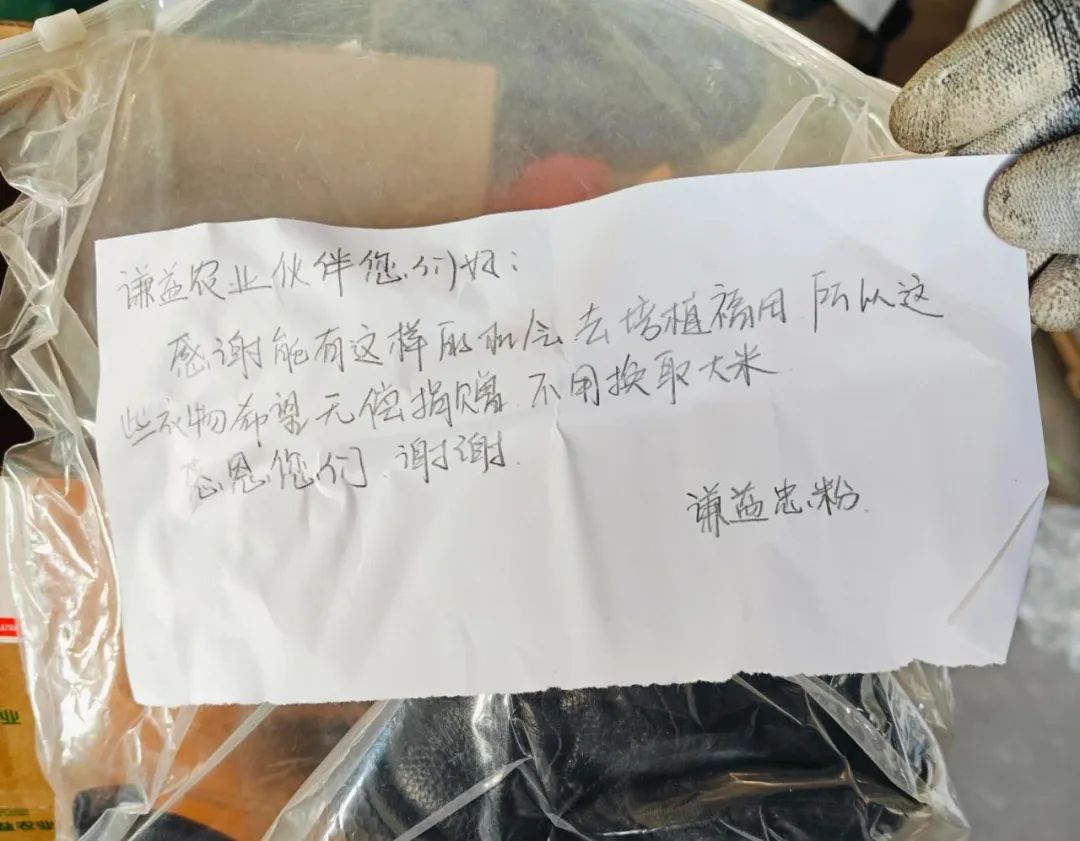 谦益农业伙伴您们好：
感谢能有这样的机会去培植福田 所以这
些衣物希望无偿捐赠 不用换取大米
感恩您们 谢谢.
谦益忠粉.
业